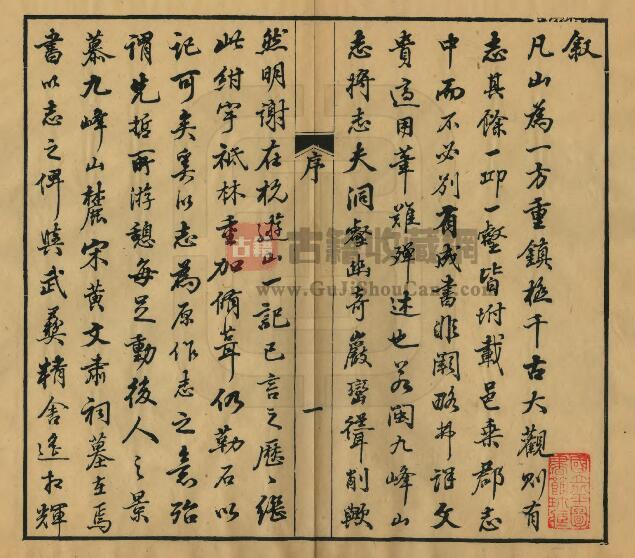 叙
凡山為一方重鎮極千古大觀則有
志其餘一邱一壑皆坿載邑乘郡志
中而不必別有成書非闕略詳文
貴適用筆難殫述也若閩九峰山
志將志夫洞壑幽奇巖巒聳削歟
序
一
然明謝在杭遊山一記已言之歷〻繼
此紺宇祇林重加脩葺仍勒石以
記可矣奚以志為原作志之意殆
謂先哲所游憩每足動後人之景
慕九峰山麓宋黄文肅祠墓在焉
書以志之俾與武彝精舍遙相輝
古籍
古籍收藏網
www.GuJiShouCang.com